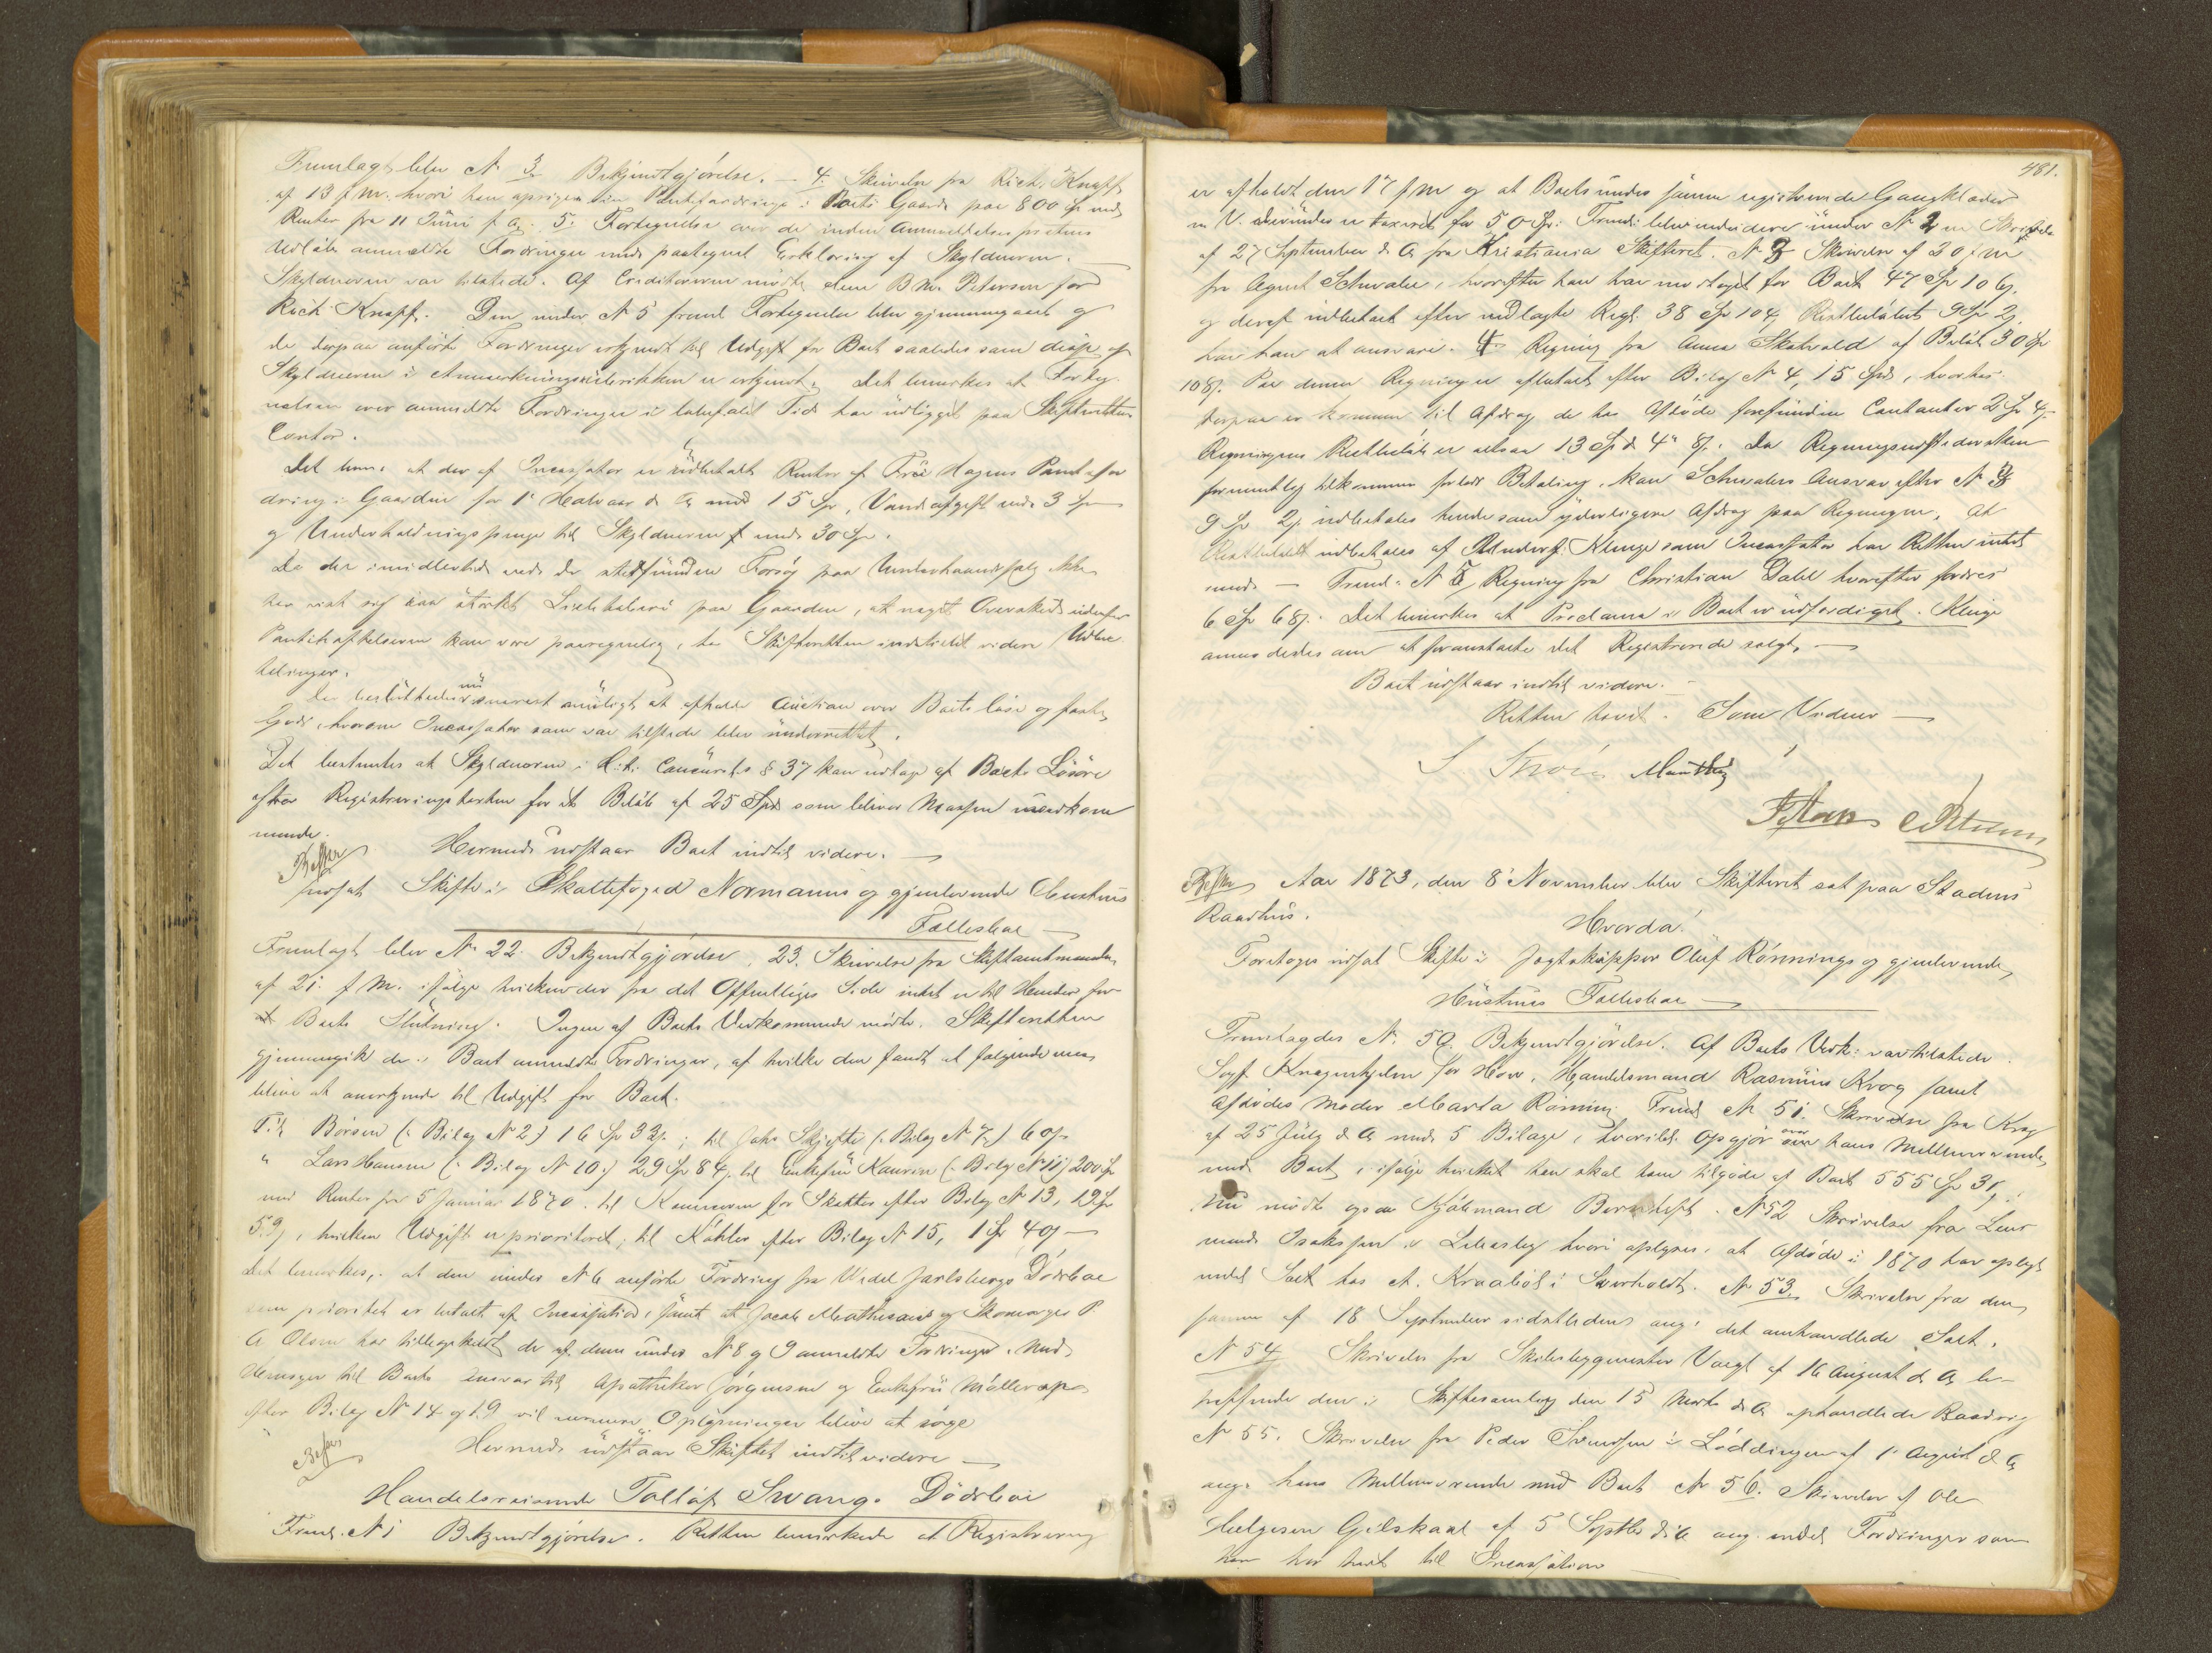 Fremlagt blev N 3 Bekjendtgjørelse. — 4. Skrivelse fra Rich. Knapp
af 13 f M. hvori han opsiger sin Pantefordring i Boets Gaard paa 800 Sp med
Renter fra 11 Juni f A. 5. Fortegnelse over de inden Anmeldelsesfristens
Udløb anmeldte Fordringer med paategnet Erklæring af Skyldneren.
Skyldneren var tilstede. Af Creditorerne mødte alene B M. Petersen for
Rich Knapp. Den under N 5 freml Fortegnelse blev gjennemgaaet og
de derpaa anførte Fordringer erkjendt til Udgift for Boet saaledes som disse af
Skyldneren i Anmærkningsrubrikken er erkjendt. Det bemærkes at Forteg-
nelsen over anmeldte Fordringer i lovbefalet Tid har udligget paa Skifterettens
Contor.
Det bem: at der af Incassator er udbetalt Renter af Frue Hagens Pantefor
dring i Gaarden for 1ste Halvaar d A med 15 Sp, Vandafgift med 3 Sp
og Underholdningspenge til Skyldneren med 30 Sp.
Da der imidlertid ved de stedfundne Forsøg paa Underhaandssalg ikke
har vist sig saa stærkt Liebhaberi paa Gaarden, at noget Overskud udenfor
Pantehæftelserne kan være paaregnelig, har Skifteretten indstillet videre Udbe
talinger.
Der besluttedes nu snarest muligt at afholde Auction over Boets løse og faste
Gods, hvorom Incassator som var tilstede blev underrettet.
Det bestemtes at Skyldneren i H. t. Concurslov § 37 kan udtage af Boets Løsøre
efter Registreringstaxten for et Beløb af 25 Spd som bliver Massen uvedkom
mende.
Hermed udstaar Boet indtil videre. —
fortsat Skifte i Skattefoged Normanns og gjenlevende Enkes
Fællesbo —
Fremlagt blev N 22. Bekjendtgjørelse, 23. Skrivelse fra Stiftamtmanden
af 21 f M. ifølge hvilken der fra det Offentliges Side intet er til Hinder for
Boets Slutning. Ingen af Boets Vedkommende mødte. Skifteretten
gjennemgik de i Boet anmeldte Fordringer, af hvilke den fandt at følgende maa
blive at anerkjende til Udgift for Boet.
Til Børsen (: Bilag N 2) 16 Sp 33 s; til Joh. Skjefte (: Bilag N 7) 60 s
" Lars Hansen (: Bilag N 10) 29 Sp 84 s til Enkefru Kaurin (: Bilag N 11) 200 Sp
med Renter fra 5 Januar 1870. til Kæmneren for Skatter efter Bilag N 13, 12 Sp
59 s, hvilken Udgift er prioriteret; til Köhler efter Bilag N 15, 1 Sp 40 s —
Det bemærkes, at den under N 6 anførte Fordring fra Wedel Jarlsbergs Dødsbo
som prioritet er betalt af Incassator, samt at Jacob Mathiesens og Skomager P.
A Olsen har tilbagekaldt de af dem under N 8 og 9 anmeldte Fordringer. Med
Hensyn til Boets Ansvar til Apotheker Jørgensen og Enkefru Møllerop
efter Bilag N 14 og 19 vil nærmere Oplysninger blive at søge
Hermed udstaar Skiftet indtil videre —
Handelsreisende Tollof Svang. Dødsbo
Freml. N 1 Bekjendtgjørelse. Retten bemærkede at Registrering
481.
er afholdt den 17 f M og at Boets under samme registrerede Gangklæder
m V. derunder er taxeret for 50 Sp: Freml: blev videre under N 2 en Skrivelse
af 27 September d A fra Kristiania Skifteret. N 3 Skrivelse af 30 f M
fra Agent Schwabe, hvorefter han har modtaget for Boet 47 Sp 106 s.
og deraf indbetalt efter vedlagte Regl. 38 Sp 104, Restbeløbet 9 Sp 2 s
har han at ansvare. 4 Regning fra Anna Skatvold af Beløb 30 Sp
108 s. Paa denne Regning er afbetalt efter Bilag N 4, 15 Spd, hvorhos
derpaa er kommen til Afdrag de hos Afdøde forefundne Contanter 2 Sp 4 s
Regningens Restbeløb er altsaa 13 Spd 4 " 8 s. Da Regningsudstedersken
formentlig tilkommer forlods Betaling, kan Schwabes Ansvar efter N 3
9 Sp 2 s indbetales hende som yderligere Afdrag paa Regningen, at
Restbeløbet indbetales af Underf: Klinge som Incassator har Retten intet
imod — Freml: N 5 Regning fra Christian Dahl hvorefter fordres
6 Sp 68 s. Det bemærkes at Proclama i Boet er udfærdiget. Klinge
anmodedes om at foranstalte det Registrerede solgt. —
Boet udstaar indtil videre. —
Retten hævet. Som Vidner —
Aar 1873, den 8de November blev Skifteret sat paa Stadens
Raadhus.
Hvorda!
Foretoges udsat Skifte i Jagtskipper Oluf Rønnings og gjenlevende
Hustrues Fællesbo —
Fremlagdes N. 50. Bekjendtgjørelse. Af Boets Vedk: var tilstede
Sagf Kragenhjelm for Hoe, Handelsmand Rasmus Krog samt
Afdødes Moder Marta Rønning. Freml N 51. Skrivelse fra Krog
af 25 July d A med 5 Bilage, hvoribl. Opgjør over hans Mellemværende
med Boet, ifølge hvilket han skal have tilgode af Boet 555 Sp 31 s.
Nu mødte ogsaa Kjøbmand Berndtsen. N 52 Skrivelse fra Lens
mand Isaksen i Lilleslog hvori oplyses, at Afdøde i 1870 har oplagt
endel Salt hos A. Kraabøl i Sværholdt. N 53. Skrivelse fra den
samme af 18 September sidstleden ang: det omhandlede Salt.
N 54 Skrivelse fra Skibsbygmester Voigt af 16 August d A be-
træffende den i Skiftesamling den 15 Marts d A omhandlede Baadrig
N 55. Skrivelse fra Peder Svendsen i Løddingen af 1 August d A
ang: hans Mellemværende med Boet N 56. Skrivelse af Ole
Helgesen Gilskaal af 5 Septbr d A ang. endel Fordringer som
han har havt til Incassation